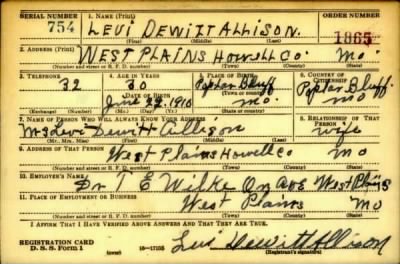 SERIAL NUMBER 1. NAME (Print) ORDER NUMBER
754 LEVI DEWITT ALLISON. 1865
(First) (Middle) (Last)
2. ADDRESS (Print)
WEST PLAINS HOWELL CO. MO
(Number and street or R. F. D. number) (Town) (County) (State)
3. TELEPHONE 4. AGE IN YEARS 5. PLACE OF BIRTH 6. COUNTRY OF CITIZENSHIP
32 30 Poplar Bluff Poplar Bluff
DATE OF BIRTH (Town or county)
June 22, 1910 mo. mo
(Exchange) (Number) (Mo.) (Day) (Yr.) (State or country)
7. NAME OF PERSON WHO WILL ALWAYS KNOW YOUR ADDRESS 8. RELATIONSHIP OF THAT PERSON
Mrs Levi Dewitt Allison wife
(Mr., Mrs., Miss) (First) (Middle) (Last)
9. ADDRESS OF THAT PERSON
West Plains Howell Co mo
(Number and street or R. F. D. number) (Town) (County) (State)
10. EMPLOYER'S NAME
Dr T E Wilke West Plains
11. PLACE OF EMPLOYMENT OR BUSINESS
West Plains Mo
(Number and street or R. F. D. number) (Town) (County) (State)
I AFFIRM THAT I HAVE VERIFIED ABOVE ANSWERS AND THAT THEY ARE TRUE.
REGISTRATION CARD
D. S. S. Form 1 16-17105 Levi Dewitt Allison
(Registrant's signature)